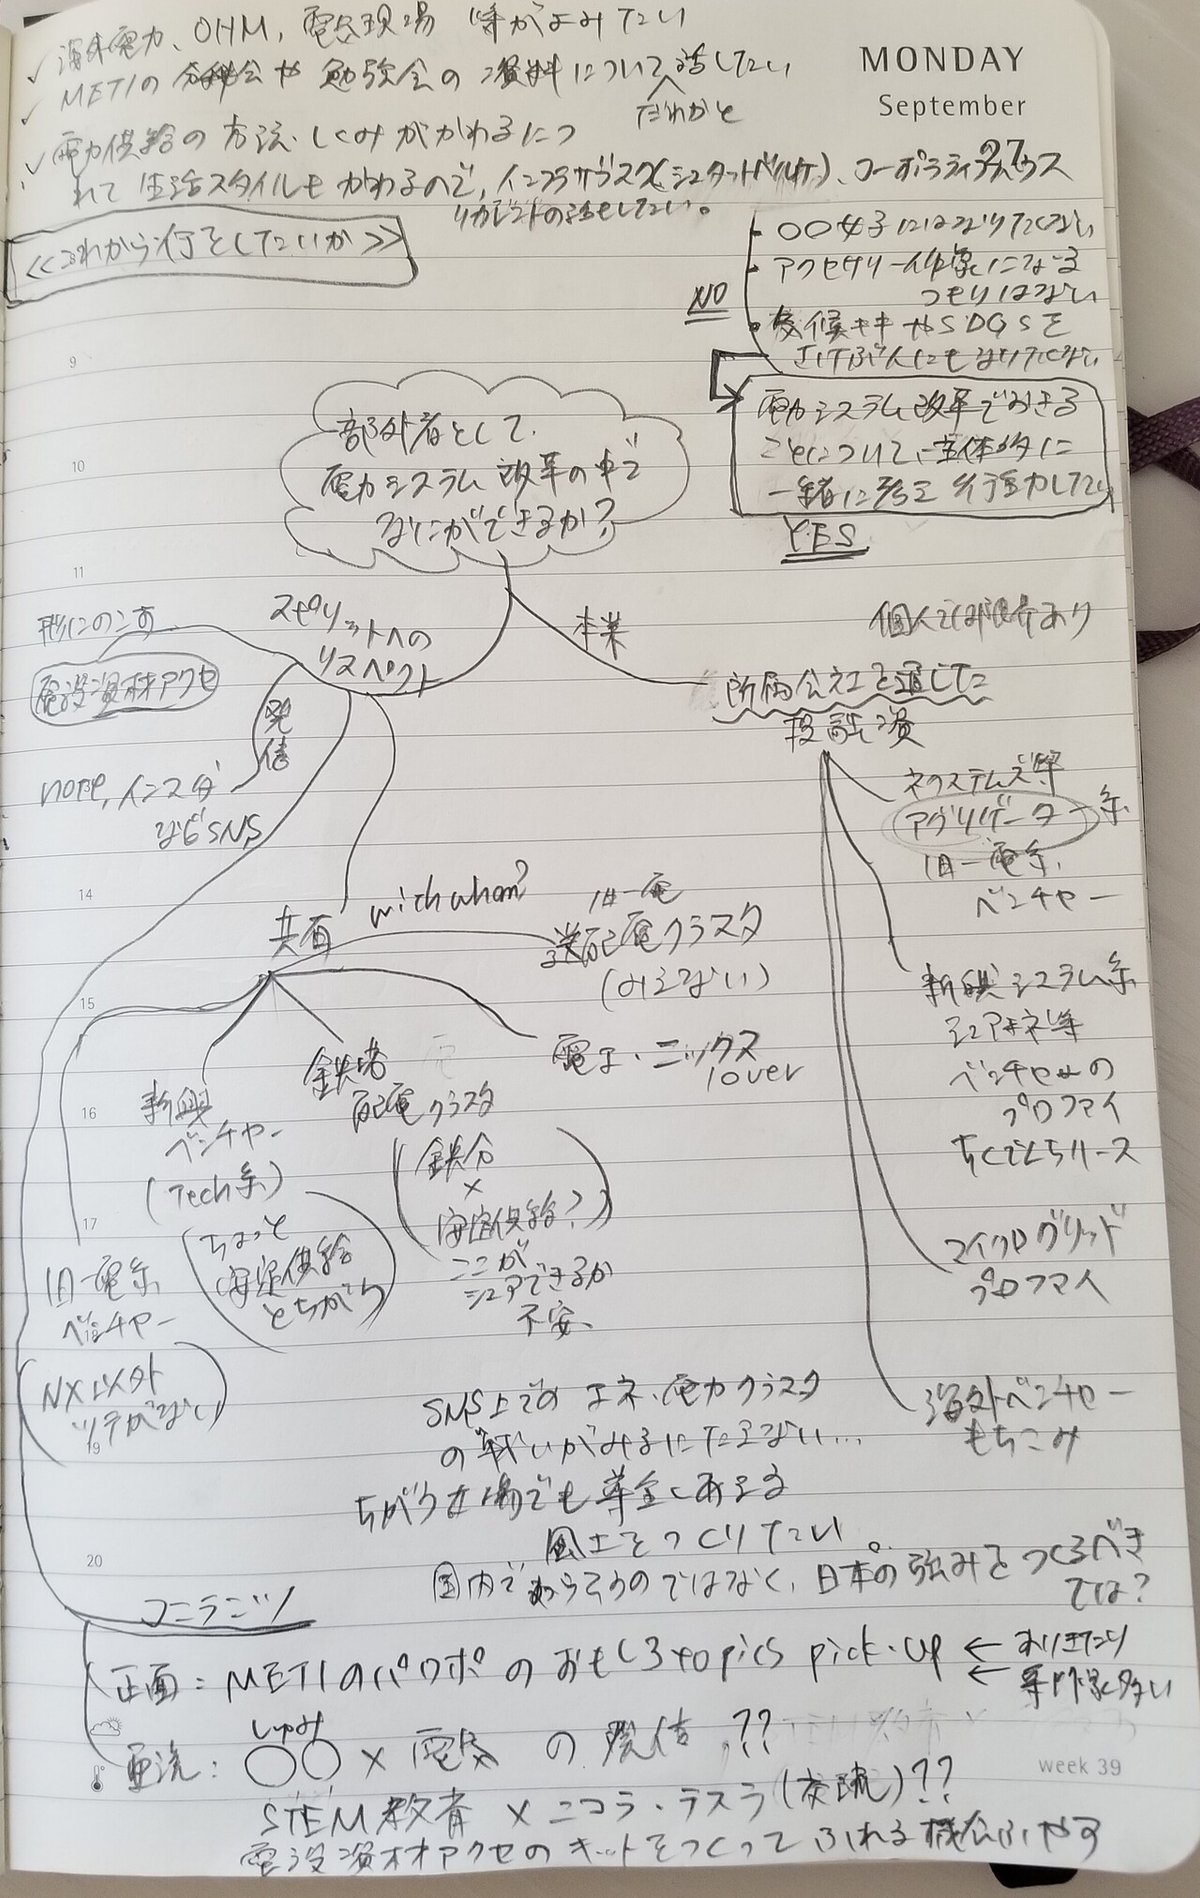 海外電力、OHM、電気現場 等がよみたい
METIの 分科会や 勉強会の資料について話したい
だれかと
電力供給の方法・しくみがかわるにつ
れて生活スタイルもかわるので、インフラサブスク(シュタットベルケ)、コーポラティブハウス
リカレントの話をしたい。
MONDAY
September
27
<<これから何をしたいか>>
NO
・○○女子にはなりたくない
・アクセサリー作家になる
つもりはない
・気候キキやSDGSを
さけぶ人にもなりたくない
電力システム改革でおきる
ことについて、主体的に
一緒に考え行動したい
YES
9
10
11
14
15
16
17
18
19
20
部外者として、
電力システム改革の中で
なにができるか?
本業
個人では限界あり
所属会社を通した
投融資
ネクステムズ等
アグリゲーター系
旧一電系
ベンチャー
新興システム系
シェアエネ等
ベンチャーの
プロファイ
ちくでんちリース
マイクログリッド
プロファイ
海外ベンチャー
もちこみ
スピリットへの
リスペクト
形にのこす
電設資材アクセ
発信
note、インスタ
などSNS
共有
with whom?
旧一電
送配電クラスタ
(みえない)
電子・ニックス
lover
鉄塔
配電クラスタ
(鉄分
×
安定供給?)
ここが
シェアできるか
不安、
新興
ベンチャー
(Tech系)
(ちょっと
安定供給
とちがう)
旧一電系
ベンチャー
(NX以外
ツテがない)
SNS上での エネ・電力クラスタ
の戦いがみるにたえない…
ちがう立場でも尊金しあえる
風土をつくりたい。
国内であらそうのではなく、日本の強みをつくるべき
では?
コンテンツ
正面:METIのパワポのおもしろtopics pick-up ← ありきたり
← 専門家多い
亜流:○○×電気 の発信??
しゅみ
STEM教育 × ニコラ・テスラ(交流)??
電設資材アクセのキットをつくってふれる機会ふやす
week 39